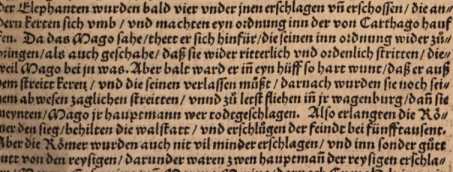 der Elephanten wurden bald vier vnder jnen erschlagen vñ erschossen / die an-
dern kerten sich vmb / vnd machten eyn ordnung inn der von Carthago hauf
fen. Da das Mago sahe / thett er sich hinfür / die seinen inn ordnung wider zů
bringen / als auch geschahe / daß sie wider ritterlich vnd ordenlich stritten / die-
weil Mago bei jn was. Aber balt ward er iñ eyn hüff so hart wunt / daß er auß
dem streitt keren / vnd die seinen verlassen můßt / darnach wurden sie noch sei-
nem abwesen zaglichen streitten / vnnd zů letst fliehen iñ jr wagenburg / dañ sie
meynten / Mago jr hauptmann wer todtgeschlagen. Also erlangten die Rö-
mer den sieg / behilten die walstatt / vnd erschlůgen der feindt bei fünfftausent.
Aber die Römer wurden auch nit vil minder erschlagen / vnd inn sonder gůtt
von den reysigen / darunder waren zwen hauptmañ der reysigen erschla-